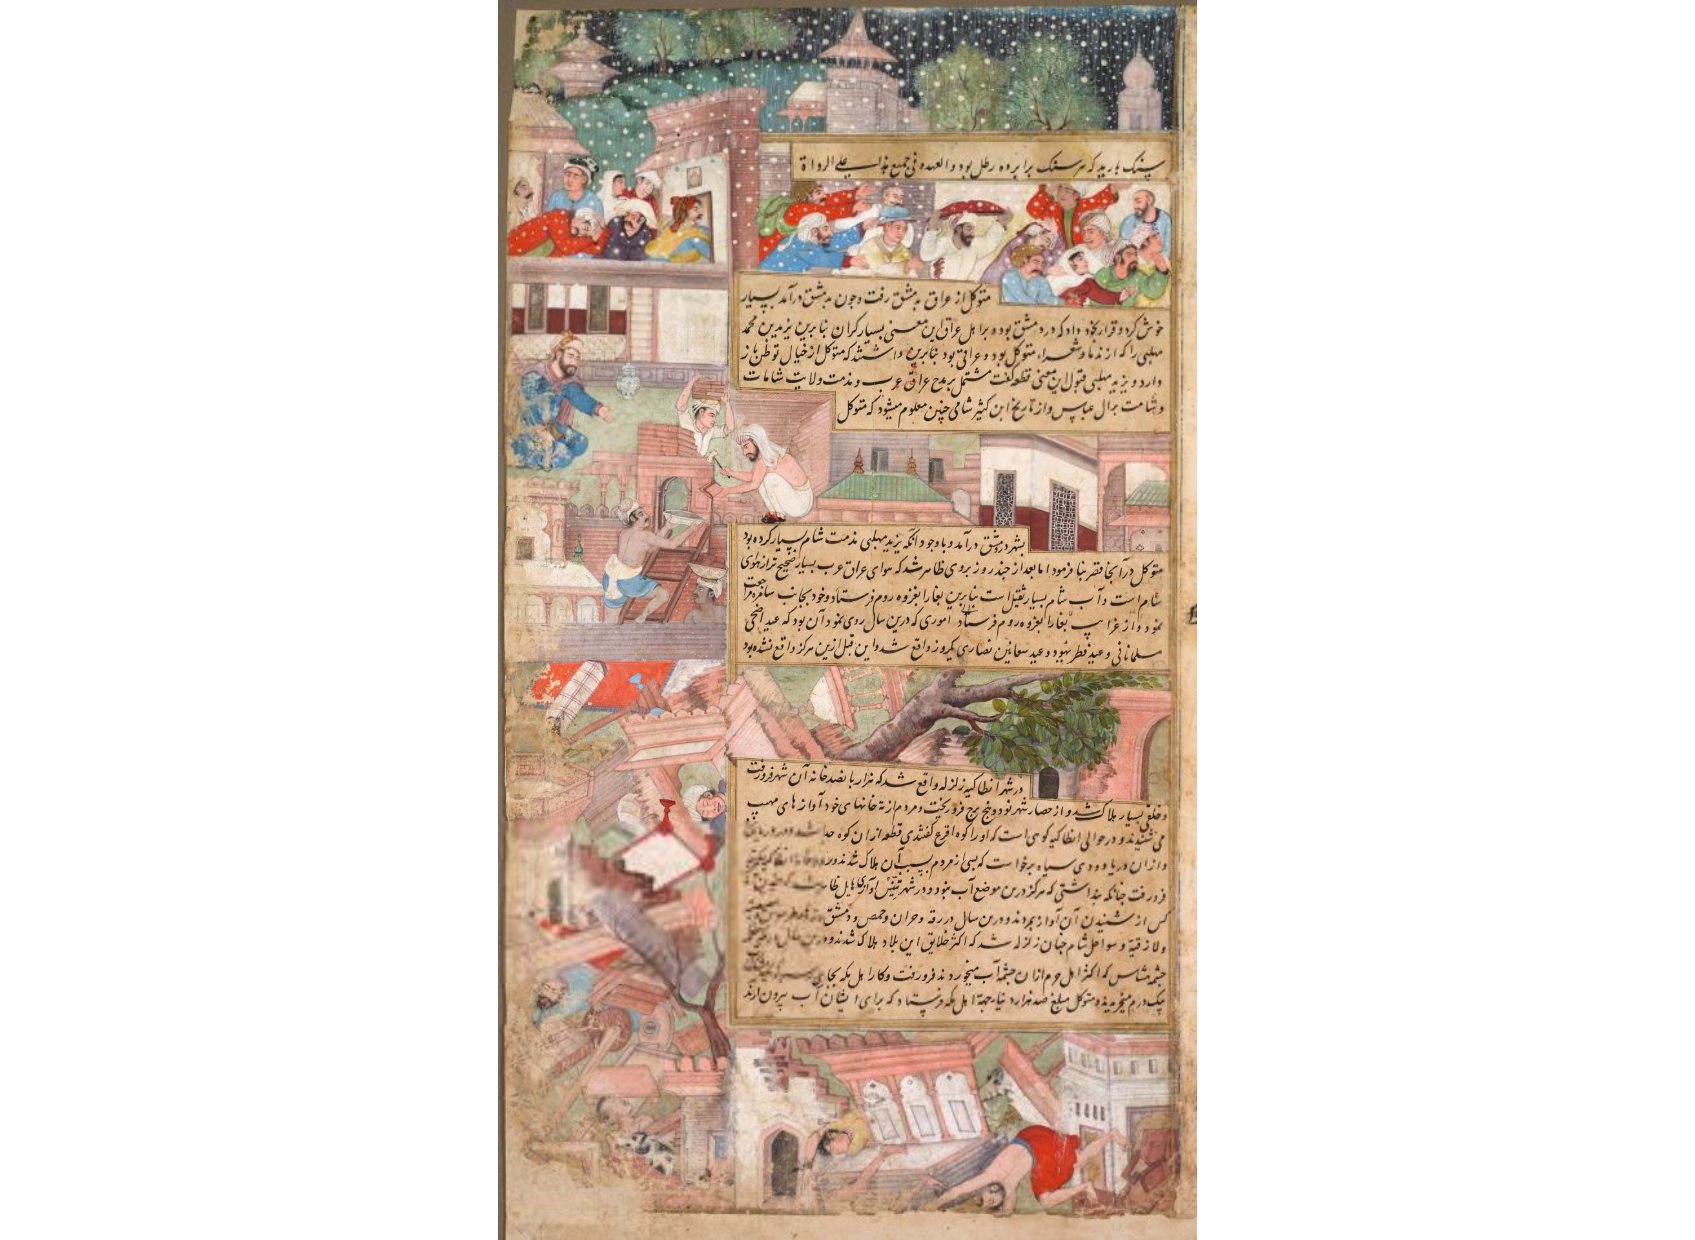 سنک بارید که هر سنک برابر ده رطل بود والعهده فی جمیع هذا علی الرواة
متوکل از عراق به دمشق رفت و چون به دمشق درآمد بسیار
خوش کرد و قرار بخود داد که در دمشق بود و بر اهل عراق این معنی بسیار کران بنابرین یزید بن محمد
مهلبی را که از ندما و شعراء متوکل بود و عراقی بود بنابرین داشتند که متوکل از خیال توطن باز
دارد و یزید مهلبی قبول این معنی قطعه کفت مشتمل بر مدح عراق عرب و مذمت ولایت شامات
و شامت برآل عباس و از تاریخ ابن کثیر شامی چنین معلوم میشود که متوکل
بشهر دمشق درآمد و با وجود آنکه یزید مهلبی مذمت شام بسیار کرده بود
متوکل در آنجا قصر بنا فرمود اما بعد از چند روز بر وی ظاهر شد که هوای عراق عرب بسیار صحیح تر از هوای
شام است و آب شام بسیار ثقیل است بنابرین بغارا بغزوه روم فرستاد و خود بجانب سامره مراجعت
نمود و از غرایب اموری که درین سال روی نمود آن بود که عید اضحی
مسلمانی و عید فطر یهود و عید شعانین نصاری یکروز واقع شد و این قبل ازین هرکز واقع نشده بود
در شهر انطاکیه زلزله واقع شد که هزار پانصد خانه آن شهر فرو رفت
و خلقی بسیار هلاک شدند و از حصار شهر نود و پنج برج فرو ریخت و مردم از ته خانهای خود آوازهای مهیب
می شنیدند و در حوالی انطاکیه کوهی است که او را کوه اقرع کفتندی قطعه از آن کوه جدا
و از آن دریا دودی سیاه برخواست که بسی از مردم بسبب آن هلاک شدند و
فرو رفت چنانکه پنداشتی که هرکز درین موضع آب نبود و در شهر تنیس آوازی هایل
کس از شنیدن آن آواز بمردند و درین سال در رقه و حران و حمص و دمشق
و لاذقیة و سواحل شام چنان زلزله شد که اکثر خلایق این بلاد هلاک شدند و
چشمه مشاس که اکثر اهل حرم از آن چشمه آب میخوردند فرو رفت و کار اهل مکه بجای
یک درم میخریدند و متوکل مبلغ صد هزار دینار جهة اهل مکه فرستاد که برای ایشان آب بیرون آرند